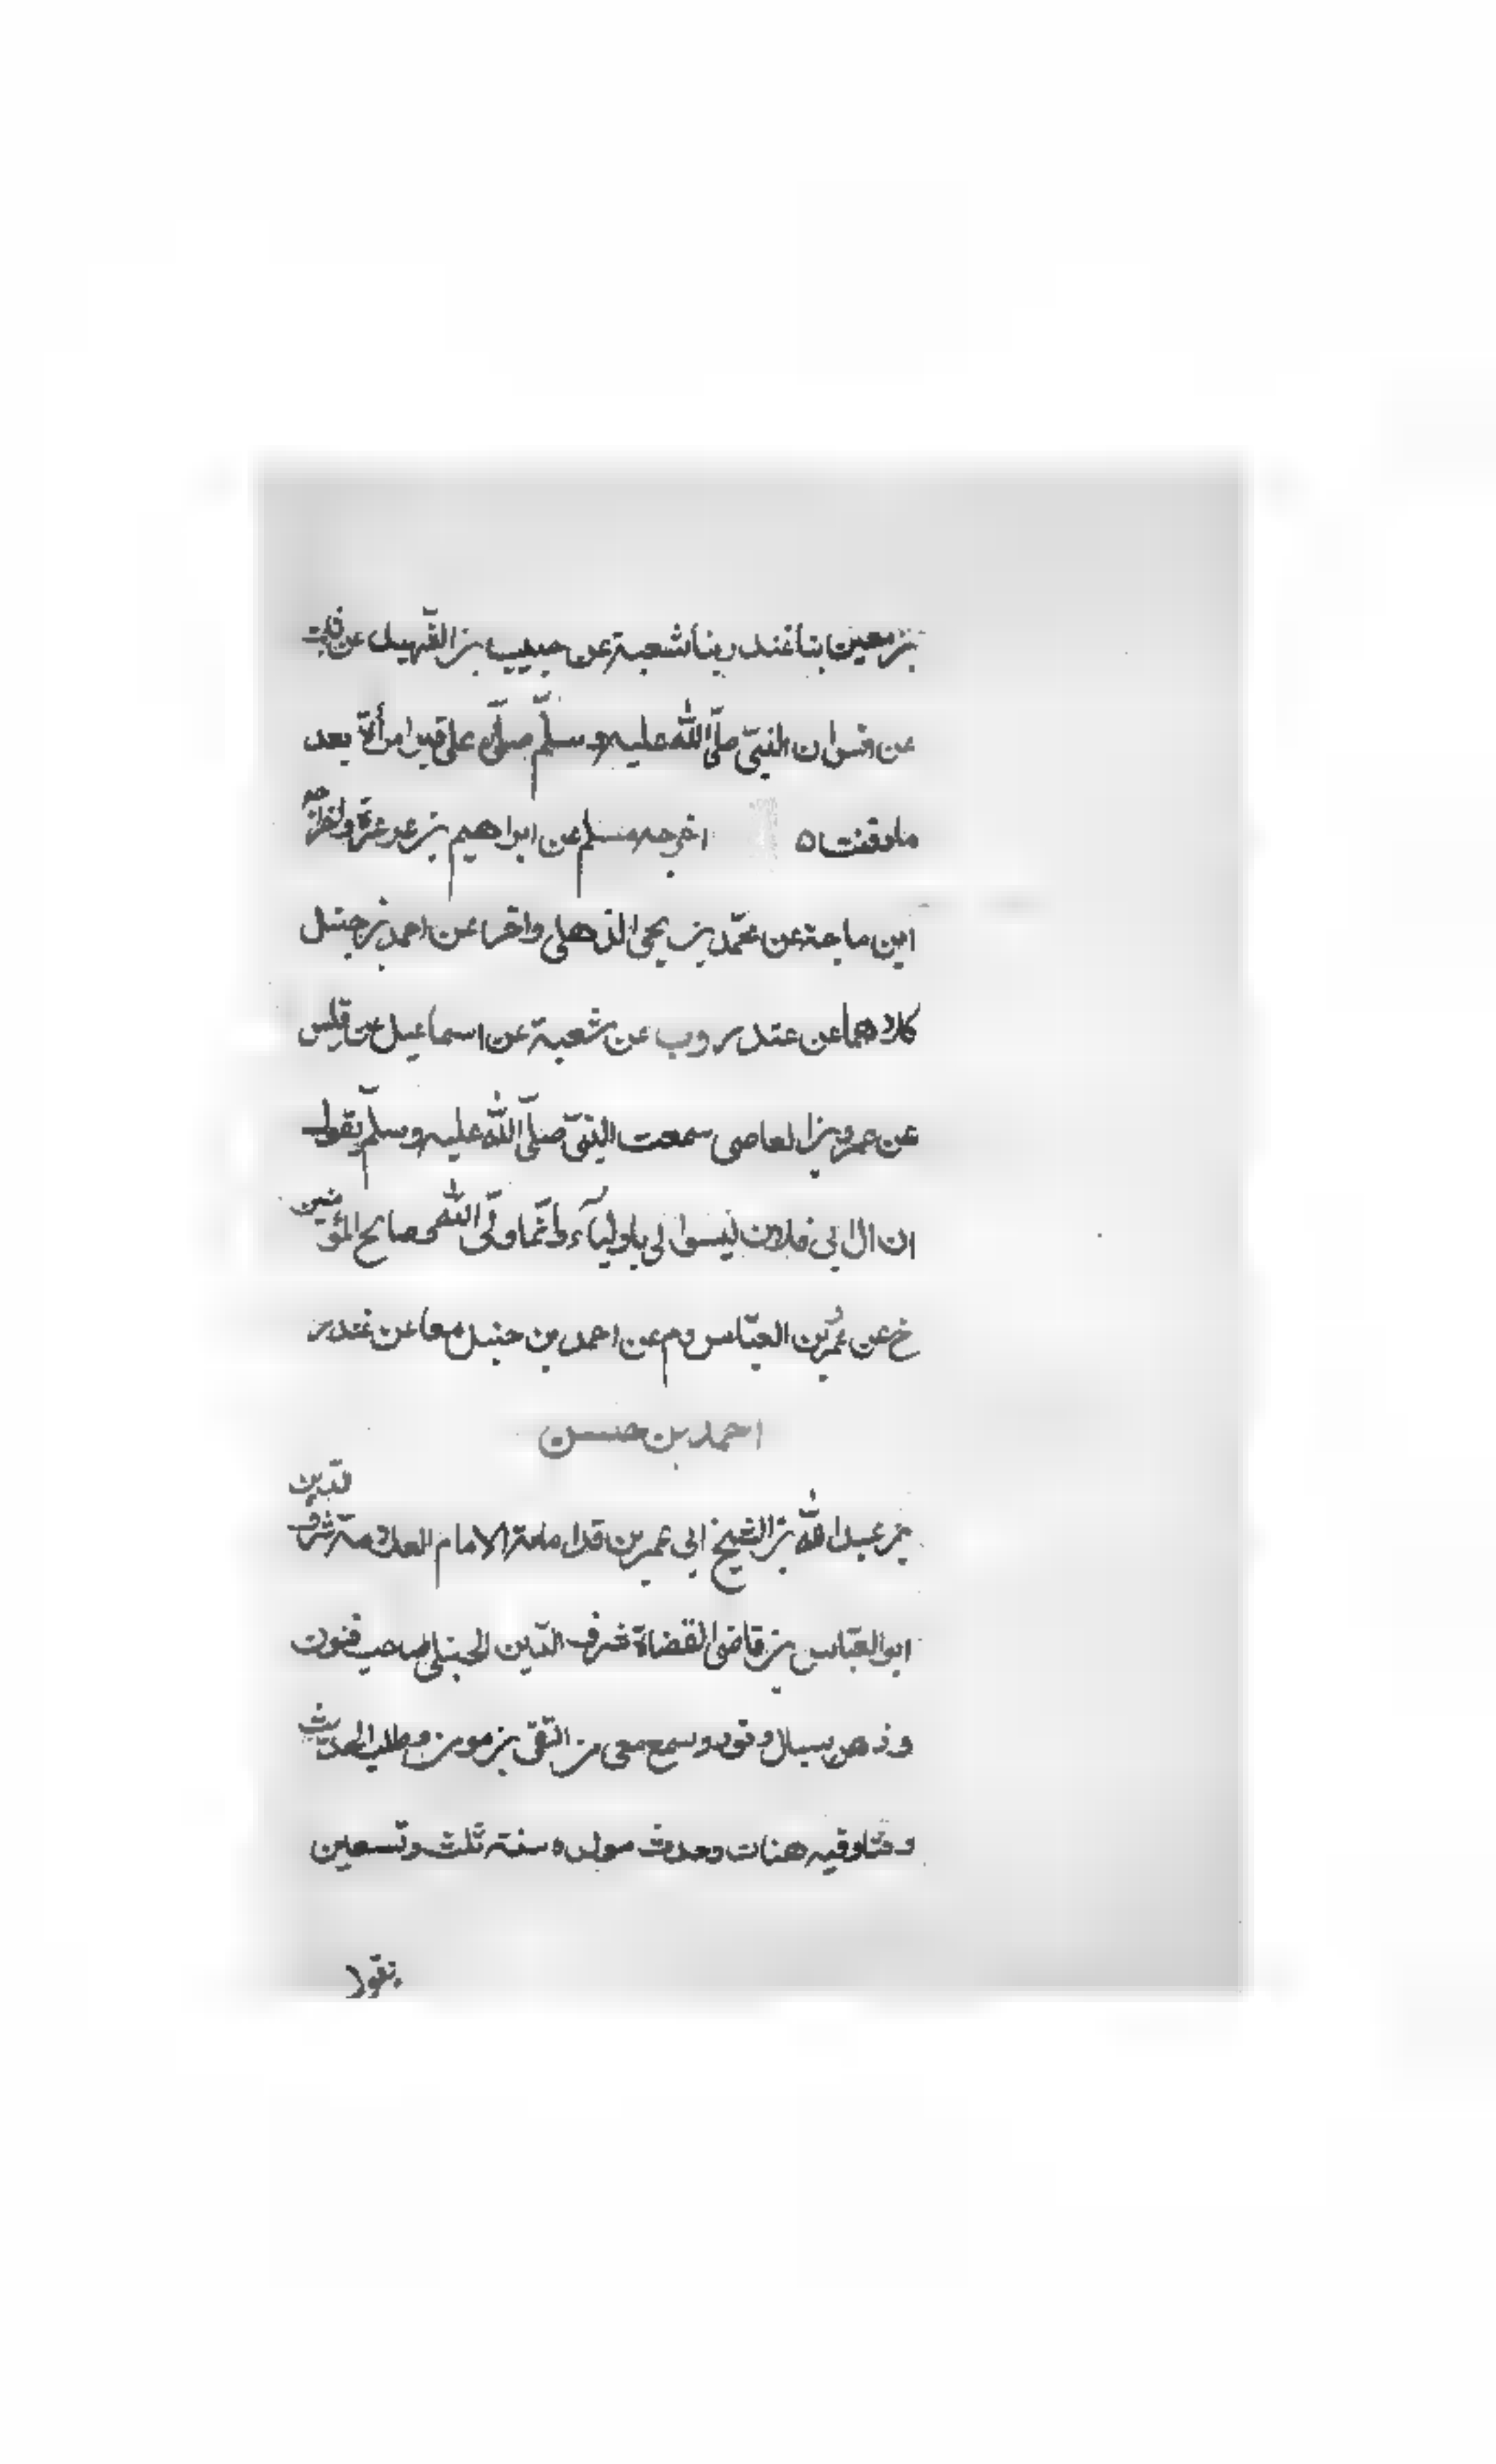 بن معين بنا غندر بنا شعبة عن حبيب بن الشهيد عن ثابت
عن انس ان النبيّ صلّى الله عليه وسلّم صلّى على قبر امرأة بعد
ما دفنت ٥ اخرجه مسلم عن ابراهيم بن عرعرة واخرجه
ابن ماجة عن محمّد بن يحيى الذهلي واخر عن احمد بن حنبل
كلاهما عن غندر وب عن شعبة عن اسماعيل عن قيس
عن عمرو بن العاصى سمعت النبىّ صلّى الله عليه وسلّم يقول
ان ال ابي فلان ليسوا لي باولياء وانّما وليّ الله وصالح المؤمنين
خ عن عمرو بن العبّاس وم عن احمد بن حنبل معا عن غندر
احمد بن حسن
بن عبد الله بن الشيخ ابى عمر بن قدامة الامام العلامة شرف الدّين
ابو العبّاس بن قاضى القضاة شرف الدّين الحنبلى صاحب فنون
وذهن سيال وتودد وسمع معى من التقى بن مومن وطلب الحديث
وقتا وفيه هنات وحدث مولده سنة ثلث وتسعين